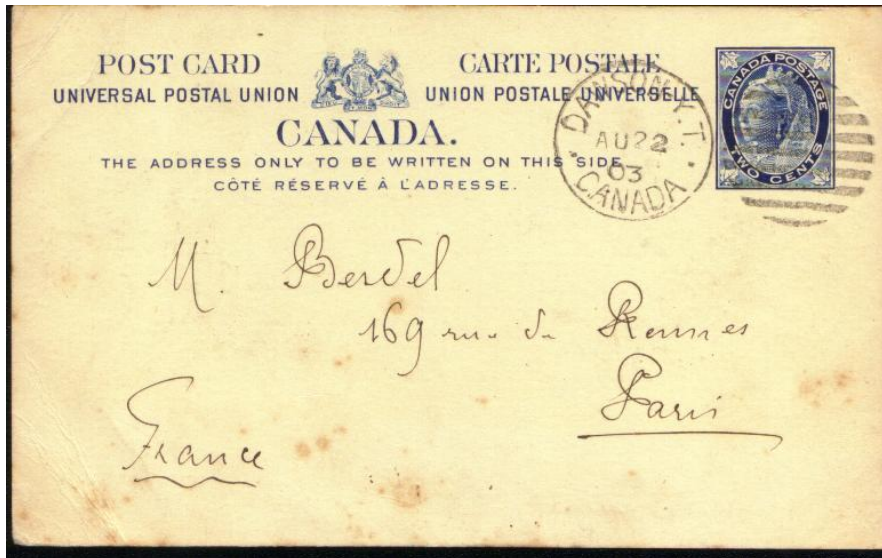 POST CARD CARTE POSTALE
UNIVERSAL POSTAL UNION UNION POSTALE UNIVERSELLE
CANADA.
THE ADDRESS ONLY TO BE WRITTEN ON THIS SIDE
CÔTÉ RÉSERVÉ À L'ADRESSE.
DAWSON Y.T.
AU 22
03
CANADA
CANADA POSTAGE
TWO CENTS
M. Berdel
169 rue de Rennes
Paris
France